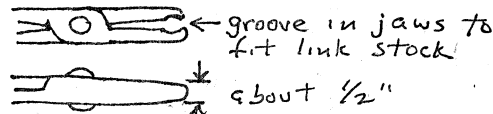 groove in jaws to
fit link stock
about 1/2"